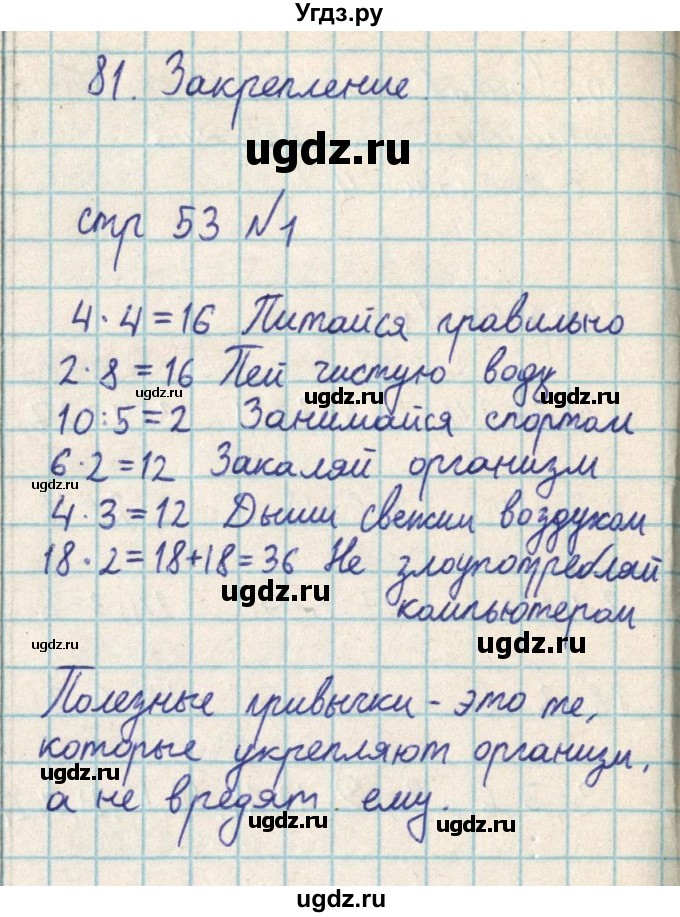 Угдз.ру
81. Закрепление.
ugdz.ru
стр 53 №1
4·4=16 Питайся правильно
2·8=16 Пей чистую воду
ugdz.ru ugdz.ru ugdz.ru
10:5=2 Занимайся спортом
6·2=12 Закаляй организм
ugdz.ru
4·3=12 Дыши свежим воздухом
18·2=18+18=36 Не злоупотребляй
ugdz.ru ugdz.ru
компьютером
ugdz.ru ugdz.ru
Полезные привычки - это те,
которые укрепляют организм,
ugdz.ru ugdz.ru
а не вредят ему.
ugdz.ru ugdz.ru
ugdz.ru